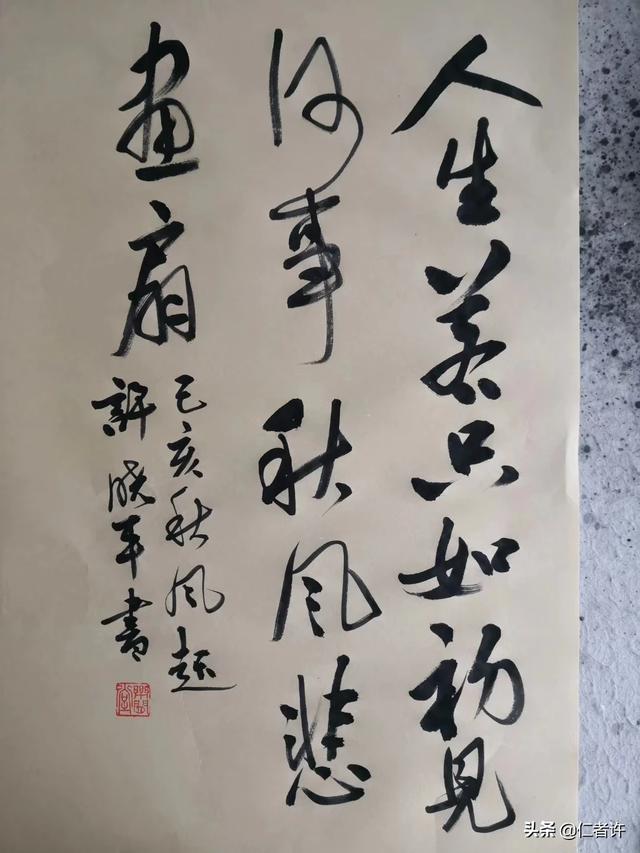 人生若只如初見
何事秋风悲
画扇
己亥秋风起
許晓平書
头条 @仁者许